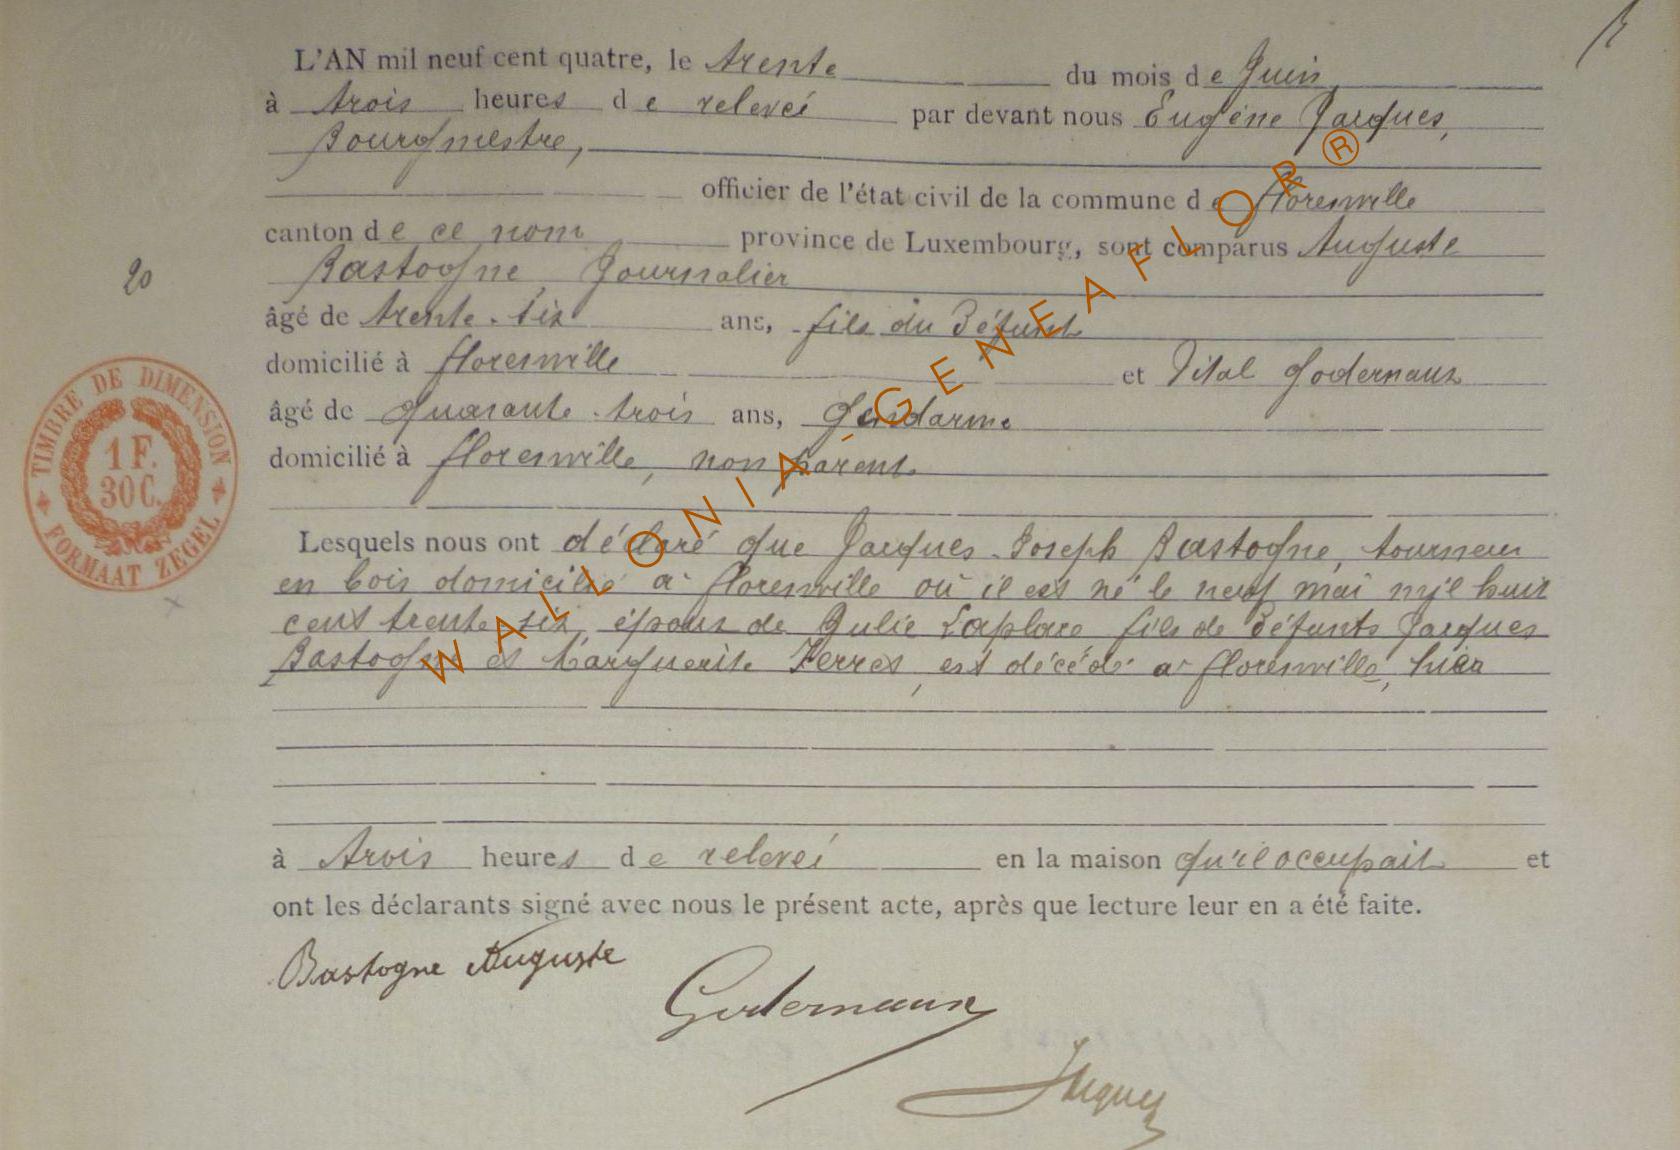 L'AN mil neuf cent quatre, le trente du mois de Juin
à trois heures de relevée par devant nous Eugène Jacques,
Bourgmestre,
officier de l'état civil de la commune de Florenville
canton de ce nom province de Luxembourg, sont comparus Auguste
Bastogne, Journalier
20
âgé de trente-six ans, fils du défunt
domicilié à Florenville et Vital Godernaux
âgé de quarante-trois ans, Gendarme
domicilié à Florenville, non parent
TIMBRE DE DIMENSION
1 F.
30 C.
FORMAAT ZEGEL
Lesquels nous ont déclaré que Jacques-Joseph Bastogne, tourneur
en bois domicilié à Florenville où il est né le neuf mai mil huit
cent trente six, époux de Julie Laplace fils de défunts Jacques
Bastogne et Marguerite Ferret, est décédé à Florenville, hier
à trois heures de relevée en la maison qu'il occupait et
ont les déclarants signé avec nous le présent acte, après que lecture leur en a été faite.
Bastogne Auguste
Godernaux
Jacques
WALLONIA - GENEAFLOR ®